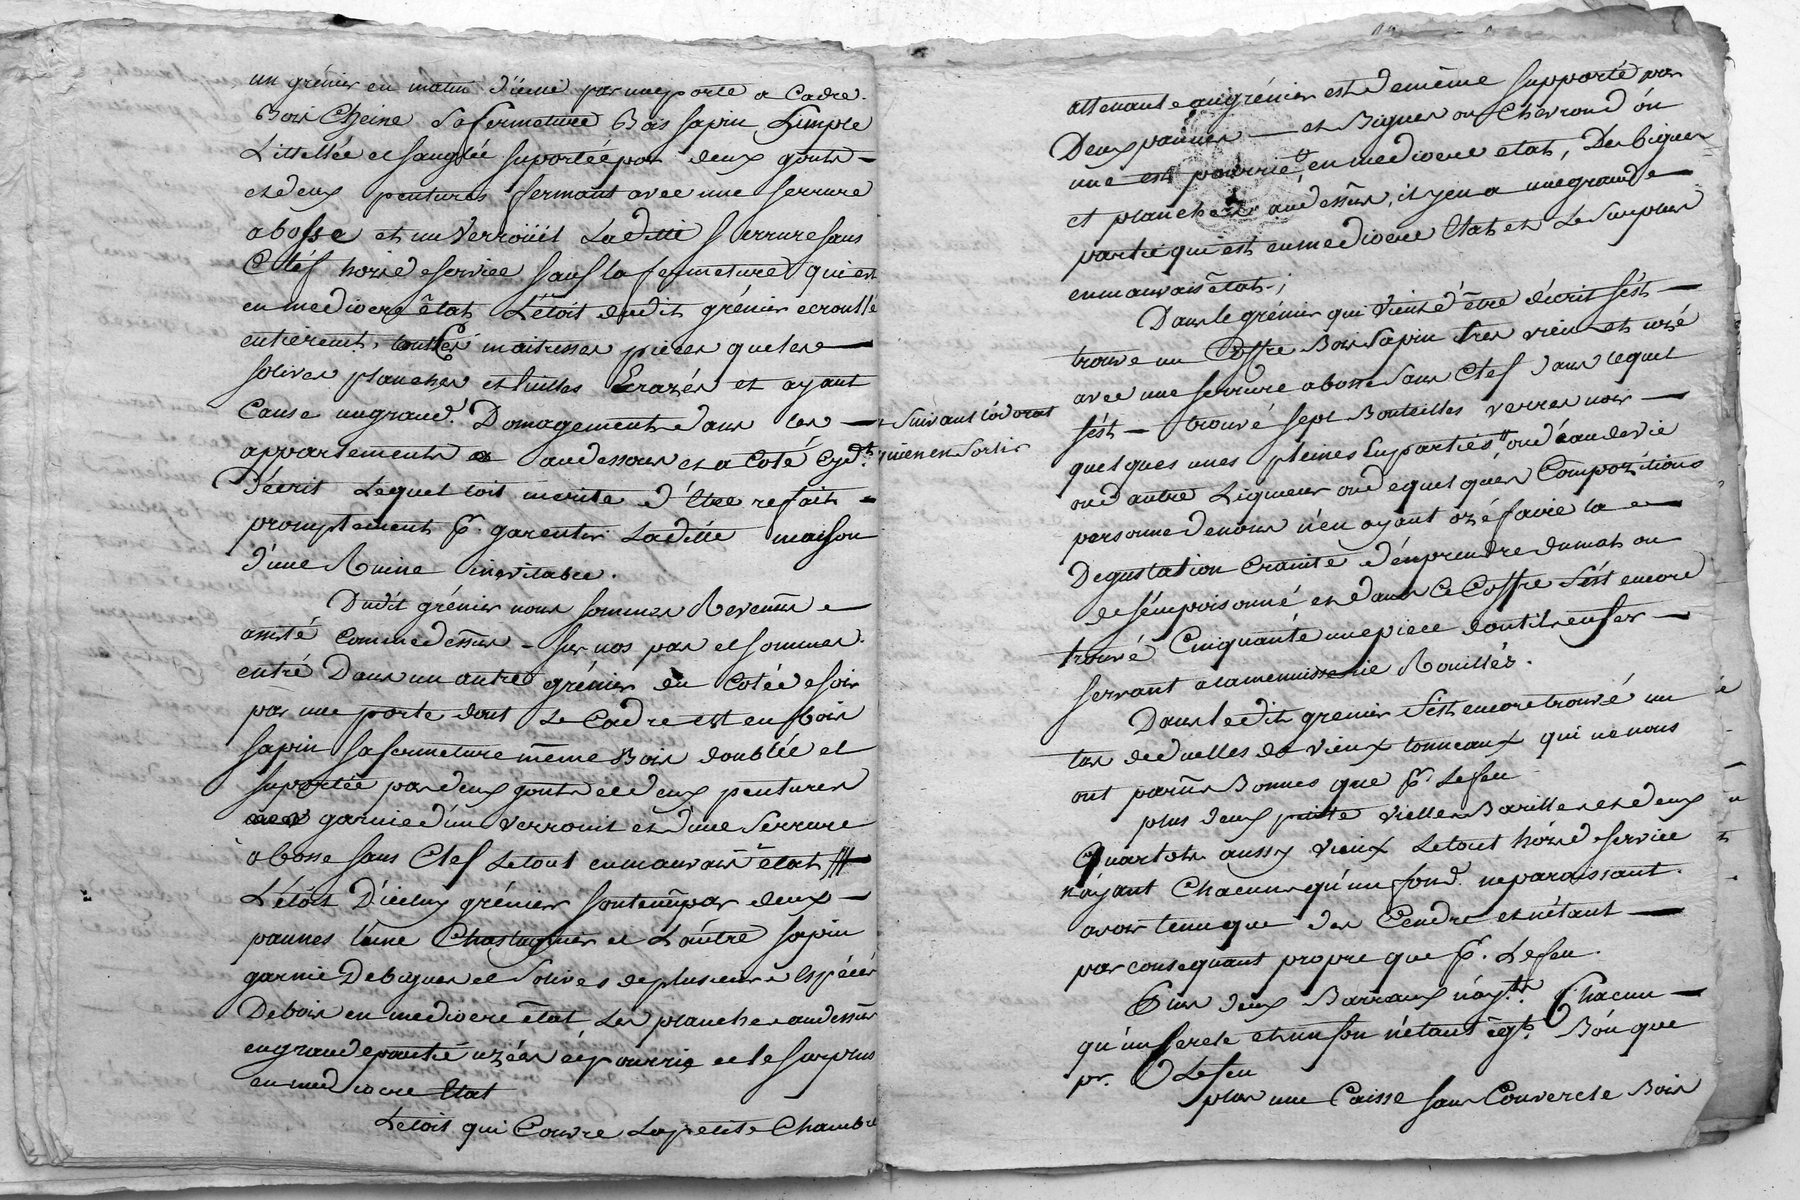 un grénier en matin d'icmé par une porte a Cadre
Bois Cheine Sa fermeture Bois sapin Simple
Littellée et sanglée suportée par deux gonts
et deux pentures fermant avec une serrure
a bosse et un Verroüil Laditte Serrure sans
Clef hors de service sauf la fermeture qui est
en mediocre état Le toit dudit grénier ecroullé
entierement, touttes maitresses pieces que les
solives planches et tuilles Erazés et ayant
Cause un grand Domagement dans les
appartements au dessous et a Coté cy dt
décrit Lequel toit merite d'être refait
promptement pr. garentir Laditte maison
d'une Ruine inevitable.
Dudit grénier nous sommes Revenus
assisté comme dessus sur nos pas et sommes
entré Dans un autre grénier du Coté de soir
par une porte dont Le Cadre est en Bois
sapin sa fermeture même Bois doublée et
suportée par deux gonts et deux pentures
garnie d'un verrouil et d'une Serrure
a bosse sans Clef Le tout en mauvais état
Le toit D'icelux grénier soutenu par deux
pannes l'une Chastagnier et L'autre sapin
garnie De bigues et Solives de plusieurs Espéces
De bois en mediocre état Les planches au dessus
en grande partie uzées et pourrie et le surplus
en mediocre Etat
Le toit qui Couvre La petite Chambre
suivant l'odorat
qui en en Sortir
attenante au grénier est de même supporté par
Deux pannes et Bigues ou Chevrond ôn
une est pourrie, en mediocre etat, Des bigues
et planches au dessus, il y en a une grande
partie qui est en mediocre Etat et Le Surplus
en mauvais état;
Dans le grénier qui vient d'être décrit s'est
trouve un Coffre Bois Sapin tres vieu et uzé
avec une serrure a bosse Sans Clef dans lequel
s'est trouvé sept Bouteilles verre noir
quelques unes pleines En parties, ou d'eau de vie
ou d'autre Liqueur ou de quelques Compozitions
personne de nous n'en ayant ozé faire la
Degustation Crainte d'en prendre du mal ou
de s'empoisonné, et dans ce Coffre S'est encore
trouvé Cinquante une piece d'outils en fer
servant a la menuisserie Rouillés.
Dans le dit grenier S'est encore trouvé un
tas de duelles de vieux tonneaux qui ne nous
ont parus Bonnes que pr. Le feu
plus deux petitte vielles Barilles et deux
Quartots aussy vieux Le tout hors de service
n'ayant Chacuns qu'un fond ne paraissant
avoir tenu que des Cendre et n'étant
par consequant propre que pr. Le feu.
Plus deux Barraux n'ayt. Chacun
qu'un sercle et un fon n'étant égt. Bon que
pr. Le feu
plus une Caisse sans Couvercle Bois